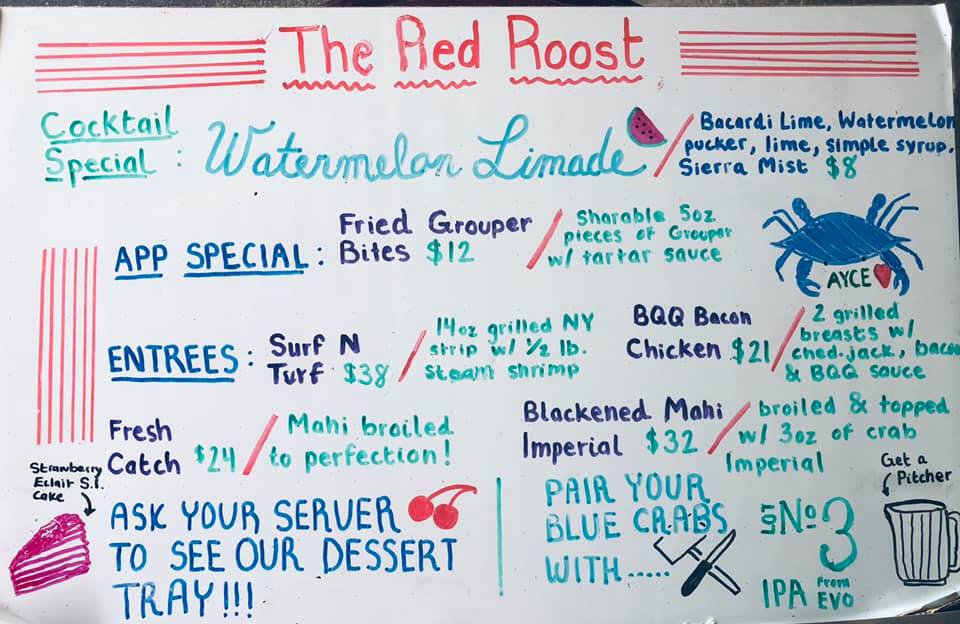 The Red Roost
Cocktail
Special:
Watermelon Limade
Bacardi Lime, Watermelon
pucker, lime, simple syrup,
Sierra Mist $8
APP SPECIAL:
Fried Grouper
Bites $12
Sharable 5oz
pieces of Grouper
w/ tartar sauce
AYCE
ENTREES:
Surf N
Turf $38
14oz grilled NY
strip w/ 1/2 lb.
steam shrimp
BQQ Bacon
Chicken $21
2 grilled
breasts w/
ched.jack, bacon
& BQQ sauce
Fresh
Catch $24
Mahi broiled
to perfection!
Blackened Mahi
Imperial $32
broiled & topped
w/ 3oz of crab
Imperial
Strawberry
Eclair S.I.
Cake
ASK YOUR SERVER
TO SEE OUR DESSERT
TRAY!!!
PAIR YOUR
BLUE CRABS
WITH.....
Lot No 3
IPA from
EVO
Get a
Pitcher